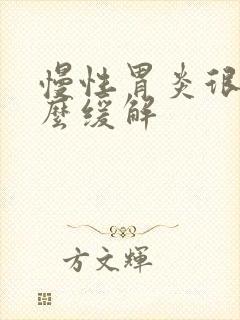 慢性胃炎很
麼缓解
方文輝